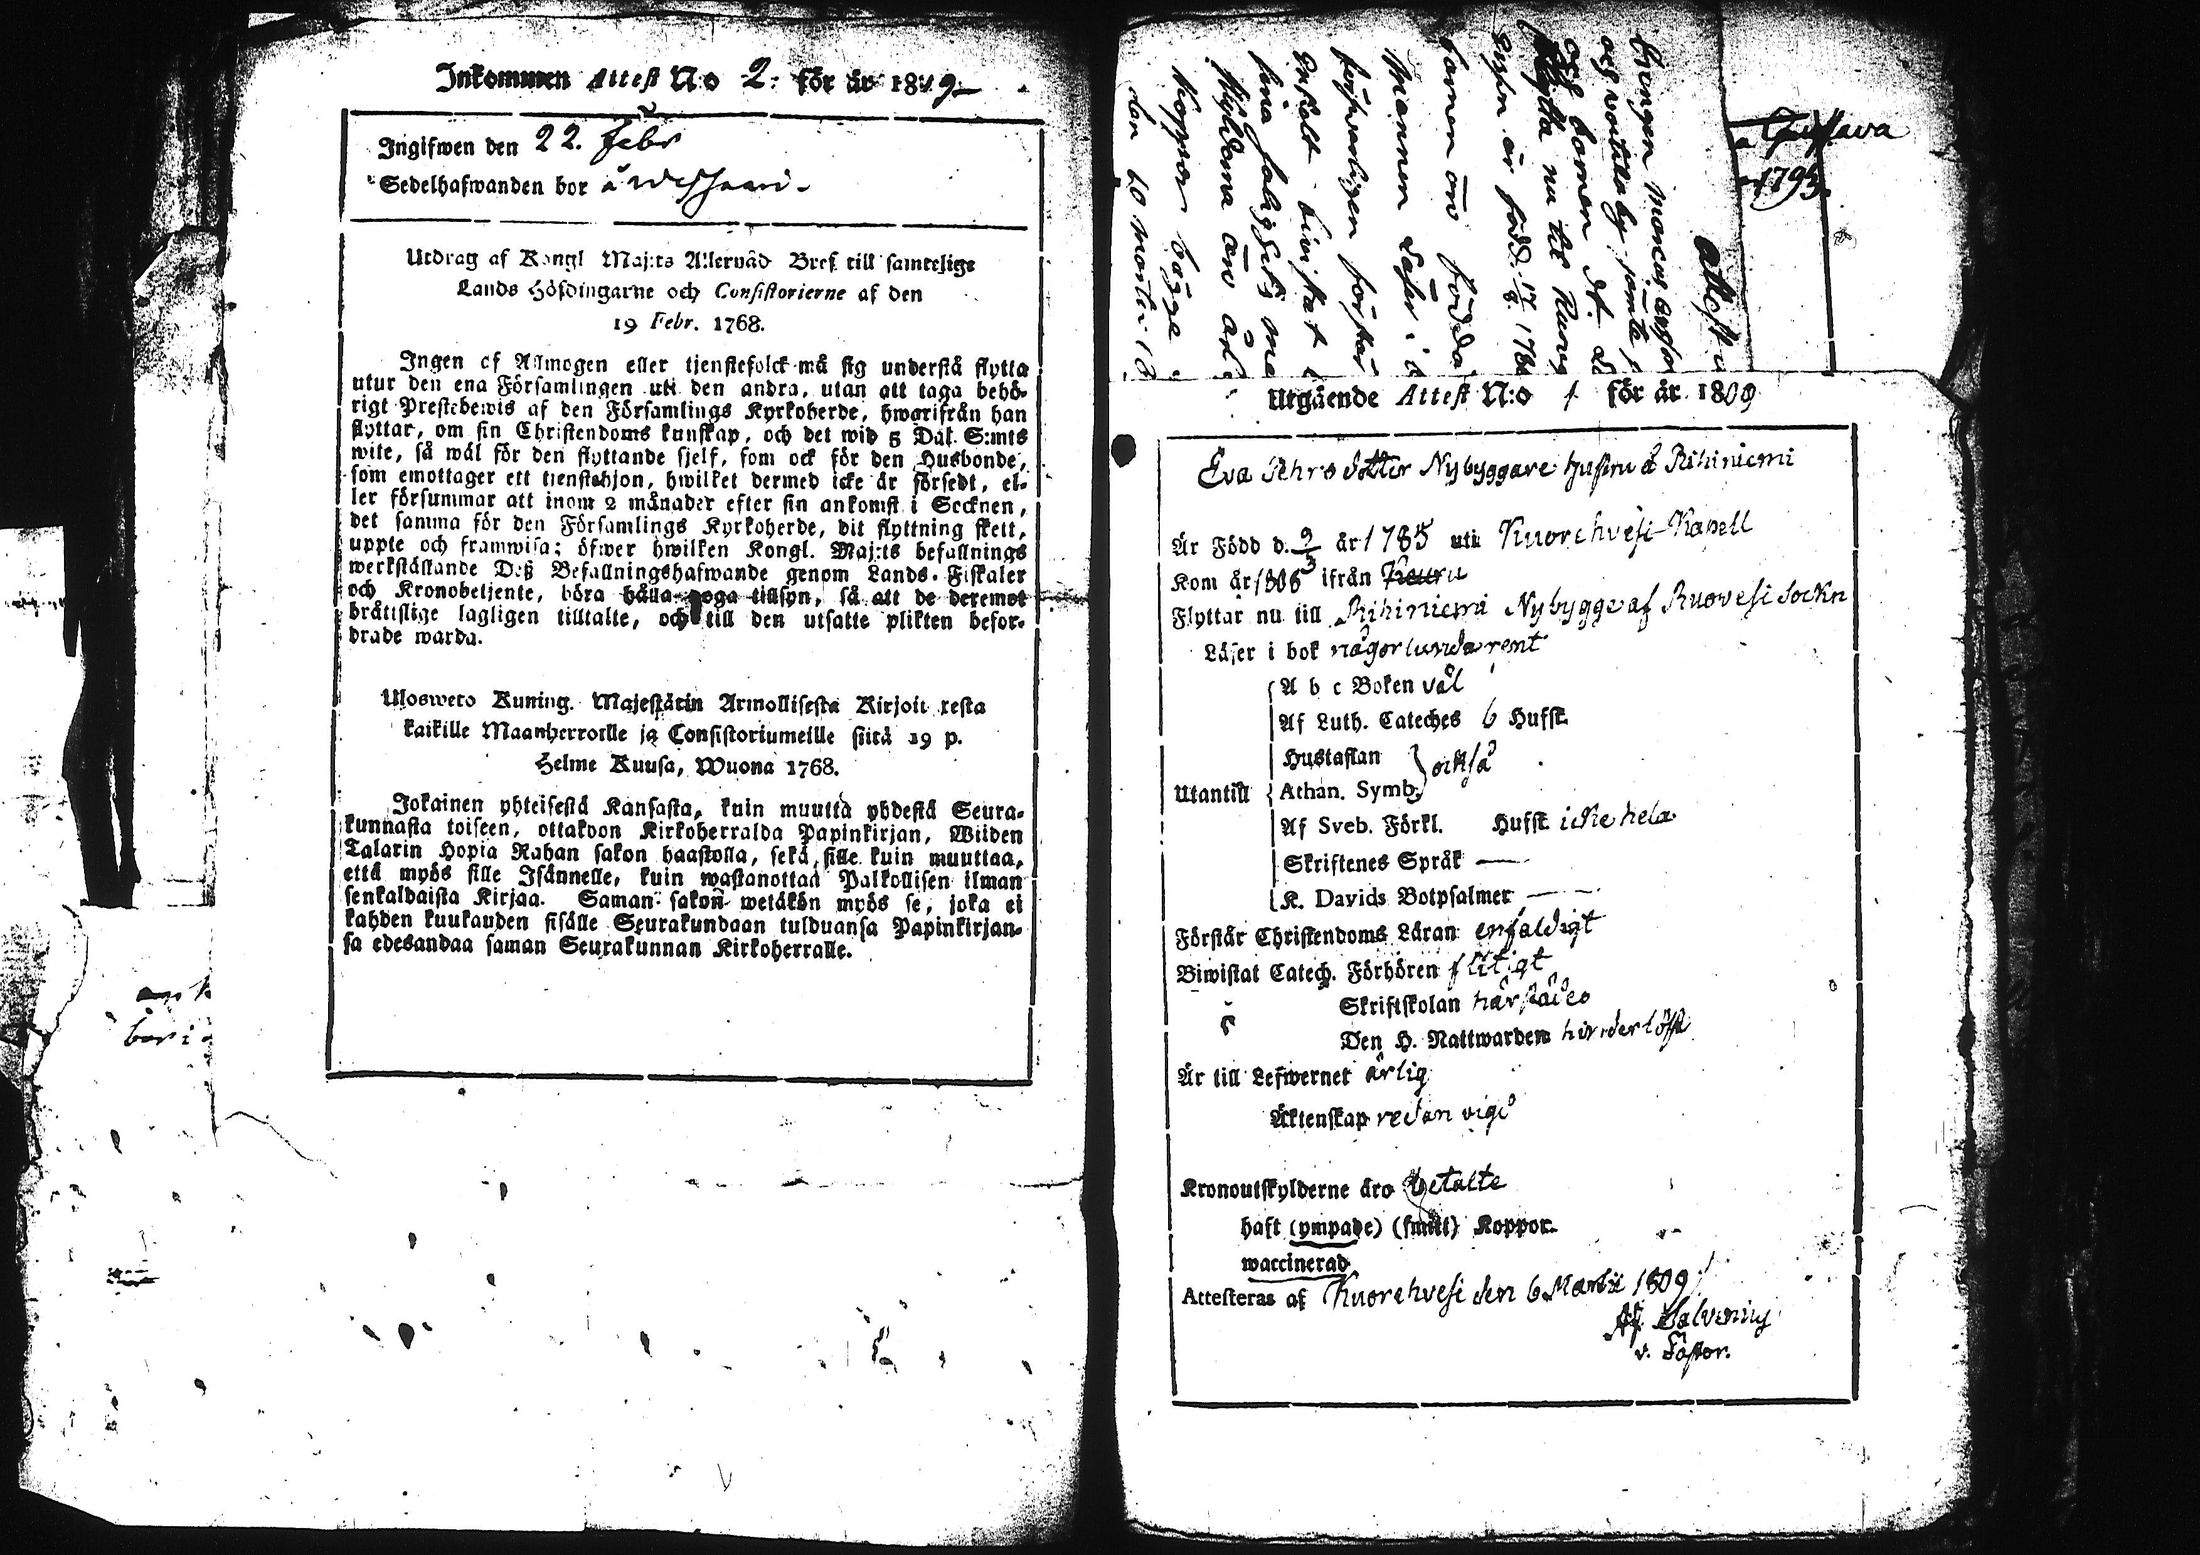 Inkommen Attest N:o 2: för år 1809
Ingifwen den 22. Febr
Sedelhafwanden bor å
Utdrag af Kongl Maj:ts Allernåd Bref till samtelige
Lands Höfdingarne och Consistorierne af den
19 Febr. 1768.
Ingen af Allmogen eller tjenstefolck må sig understå flytta
utur den ena Församlingen uti den andra, utan att taga behö-
rigt Prestebewis af den Församlings Kyrkoherde, hwarifrån han
flyttar, om sin Christendoms kunskap, och det wid 5 Dal. S:mts
wite, så wäl för den flyttande sjelf, som ock för den Husbonde,
som emottager ett tjenstehjon, hwilket dermed icke är försedt, el-
ler försummar att inom 2 månader efter sin ankomst i Socknen,
det samma för den Församlings Kyrkoherde, dit flyttning skett,
uppte och framwisa; öfwer hwilken Kongl. Maj:ts befallnings
werkställande Deß Befallningshafwande genom Lands-Fiskaler
och Kronobetjente, böra hålla noga tillsyn, så att de deremot
brättslige lagligen tilltalte, och till den utsatte plikten befor-
drade warda.
Ulosweto Kuning. Majestätin Armollisesta Kirjoituxesta
kaikille Maanherroille ja Consistoriumeille siitä 19 p.
Helme Kuusa, Wuona 1768.
Jokainen yhteisestä Kansasta, kuin muutta yhdestä Seura-
kunnasta toiseen, ottakoon Kirkoherralda Papinkirjan, Wiiden
Talarin Hopia Rahan sakon haastolla, sekä sille kuin muuttaa,
että myös sille Isännelle, kuin wastanottaa Palkollisen ilman
senkaldaista Kirjaa. Saman sakon wetäkön myös se, joka ei
kahden kuukauden sisälle Seurakundaan tulduansa Papinkirjan-
sa edesandaa saman Seurakunnan Kirkoherralle.
attest
och barnen
flytta nu till
är född 17/8 178
barnen äro födda
Mannen Läser i b
förswarligen förstår
enfalt biwistat
sina salighets me
skyldena äro
Koppor bägge
den 10 Martii 18
Gustava
1795.
Utgående Attest N:o 1 för år 1809
Eva Åhrsdotter Nybyggare hustru å Rihiniemi
Är Född d. 9/3 år 1785 uti Kuorehvesi Kapell
Kom år 1806 ifrån Keuru
Flyttar nu till Rihiniemi Nybygge af Ruovesi Sockn
Läser i bok någorlunda rent
Utantill
A b c Boken väl
Af Luth. Cateches 6 Hufst.
Hustaflan
Athan. Symb. också
Af Sveb. Förkl. Hufst. icke hela
Skriftenes Språk —
K. Davids Botpsalmer —
Förstår Christendoms Läran enfaldigt
Biwistat Catech. Förhören flitigt
Skriftskolan härstädes
Den H. Nattwarden hinderlöst
Är till Lefwernet ärlig
Äktenskap redan vigd
Kronoutskylderne äro betalte
haft (ympade) (smitt) Koppor.
waccinerad
Attesteras af Kuorehvesi den 6 Martii 1809
v. Pastor.